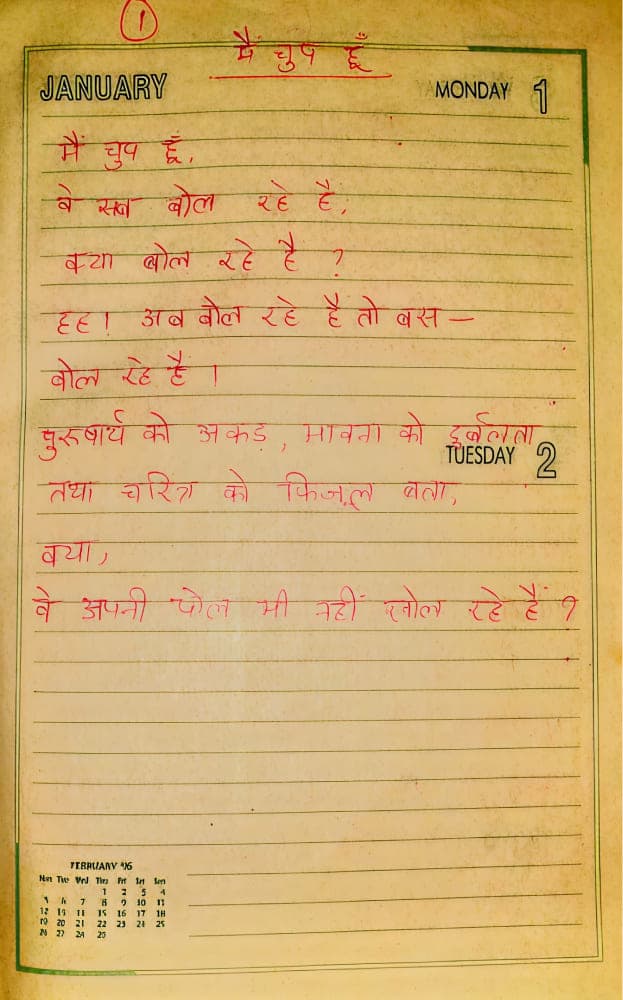 1
मैं चुप हूँ
JANUARY
MONDAY 1
मैं चुप हूँ,
वे सब बोल रहे है,
क्या बोल रहे है ?
हह। अब बोल रहे है तो बस —
बोल रहे है ।
पुरुषार्थ को अकड़, भावना को दुर्बलता
TUESDAY 2
तथा चरित्र को फिजूल बता,
क्या,
वे अपनी पोल भी नहीं खोल रहे हैं ?
FEBRUARY '96
Mon Tue Wed Thu Fri Sat Sun
1 2 3 4
5 6 7 8 9 10 11
12 13 14 15 16 17 18
19 20 21 22 23 24 25
26 27 28 29